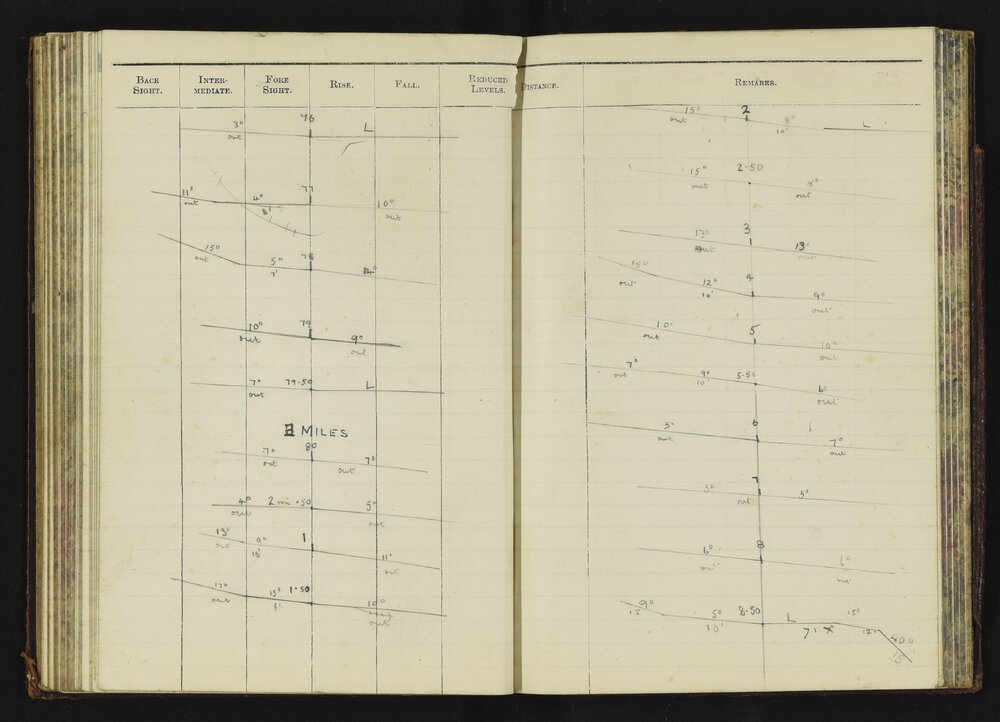 BACK SIGHT. INTER-MEDIATE. FORE SIGHT. RISE. FALL. REDUCED LEVELS. DISTANCE. REMARKS.
76
3° L
out
77
11° 4° 10°
out 8' out
15° 5° 78 14°
out 7'
10° 79 9°
out out
7° 79.50 L
out
2 MILES
80
7° 7°
out out
4° 2 mi .50 5°
out out
13° 9° 1 11°
out 10' out
17° 15° 1.50 10°
out 8' out
15° 2 8° L
out 10'
15° 2.50 15°
out out
13° 3 13°
out out
15° 12° 4 9°
out 10' out
10° 5 10°
out out
7° 9° 5.50 6°
out 10' out
5° 6 7°
out out
5° 7 5°
out
6° 8 6°
out out
9° 5° 8.50 L 15°
15' 10' 71 x 12' 40°
15